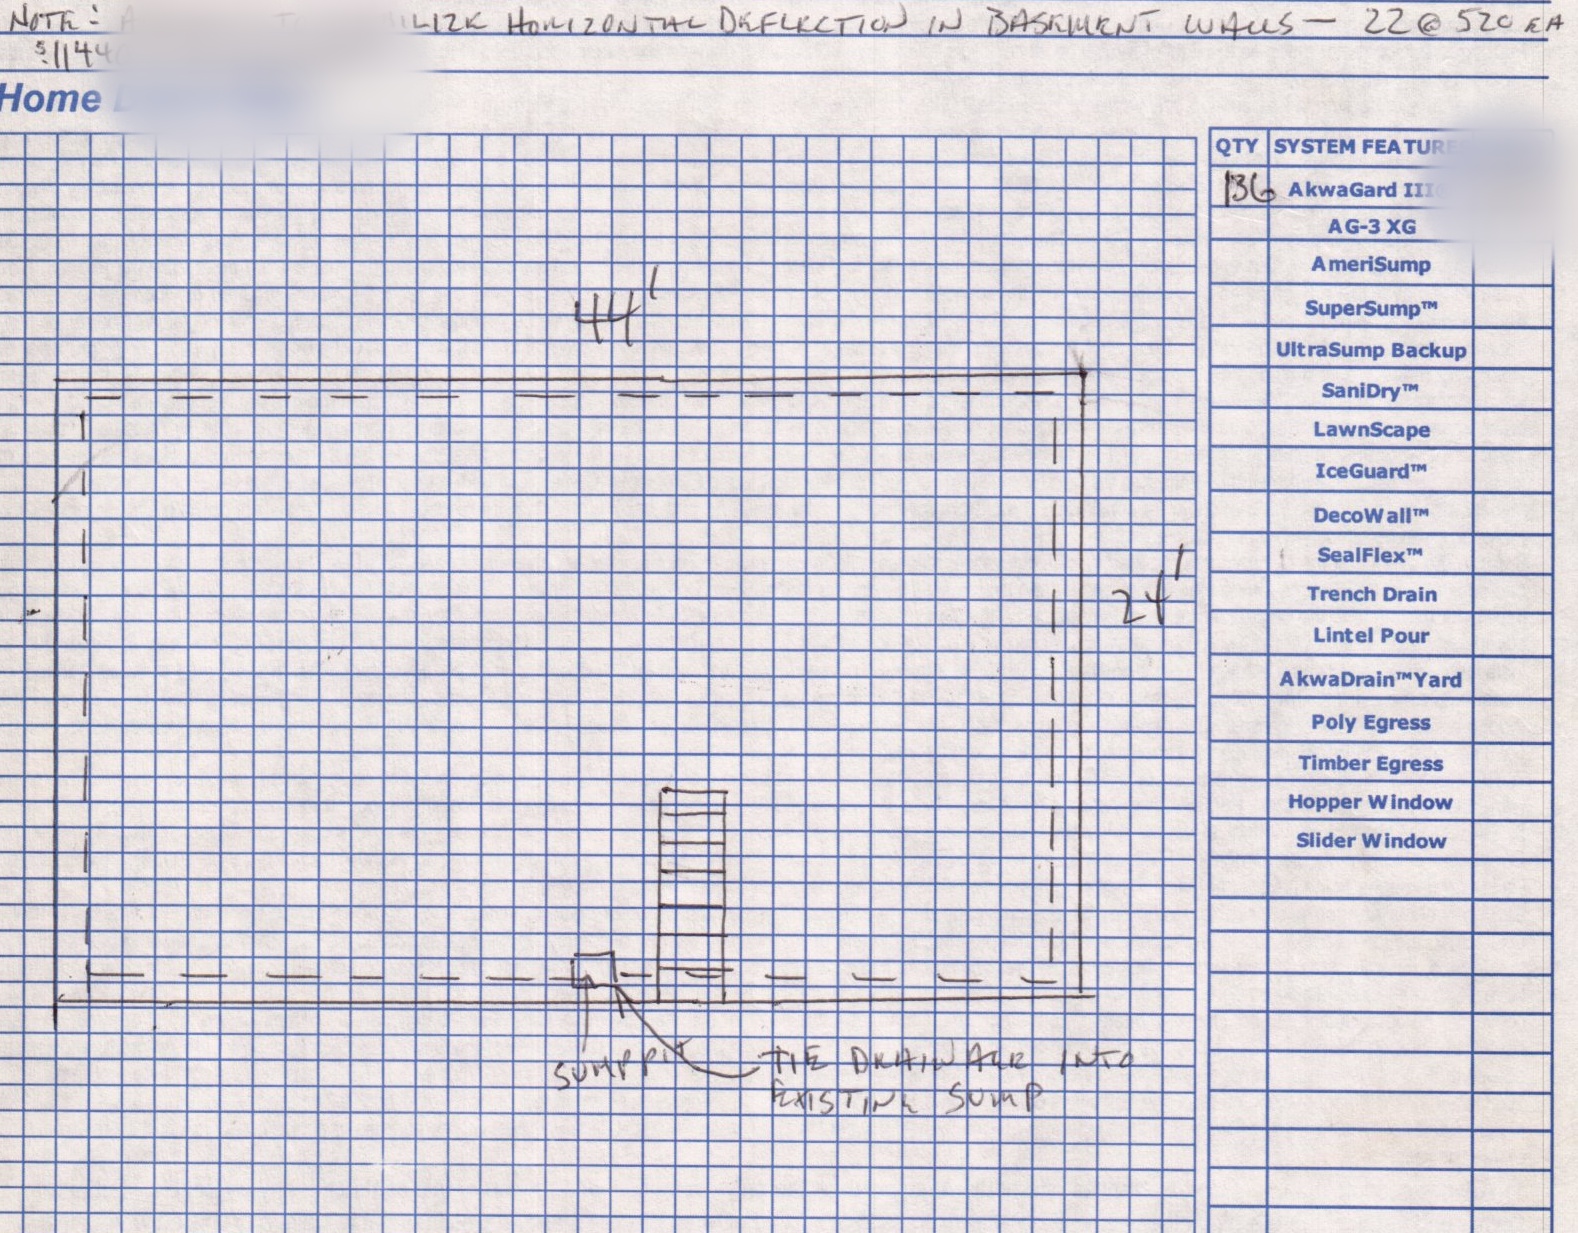 NOTE: A TO ILIZE HORIZONTAL DEFLECTION IN BASEMENT WALLS — 22 @ 520 EA
$1144
Home
QTY SYSTEM FEATURE
136 AkwaGard III
AG-3 XG
AmeriSump
SuperSump™
UltraSump Backup
SaniDry™
LawnScape
IceGuard™
DecoWall™
SealFlex™
Trench Drain
Lintel Pour
AkwaDrain™Yard
Poly Egress
Timber Egress
Hopper Window
Slider Window
44'
24'
SUMP PIT
TIE DRAINAGE INTO
EXISTING SUMP